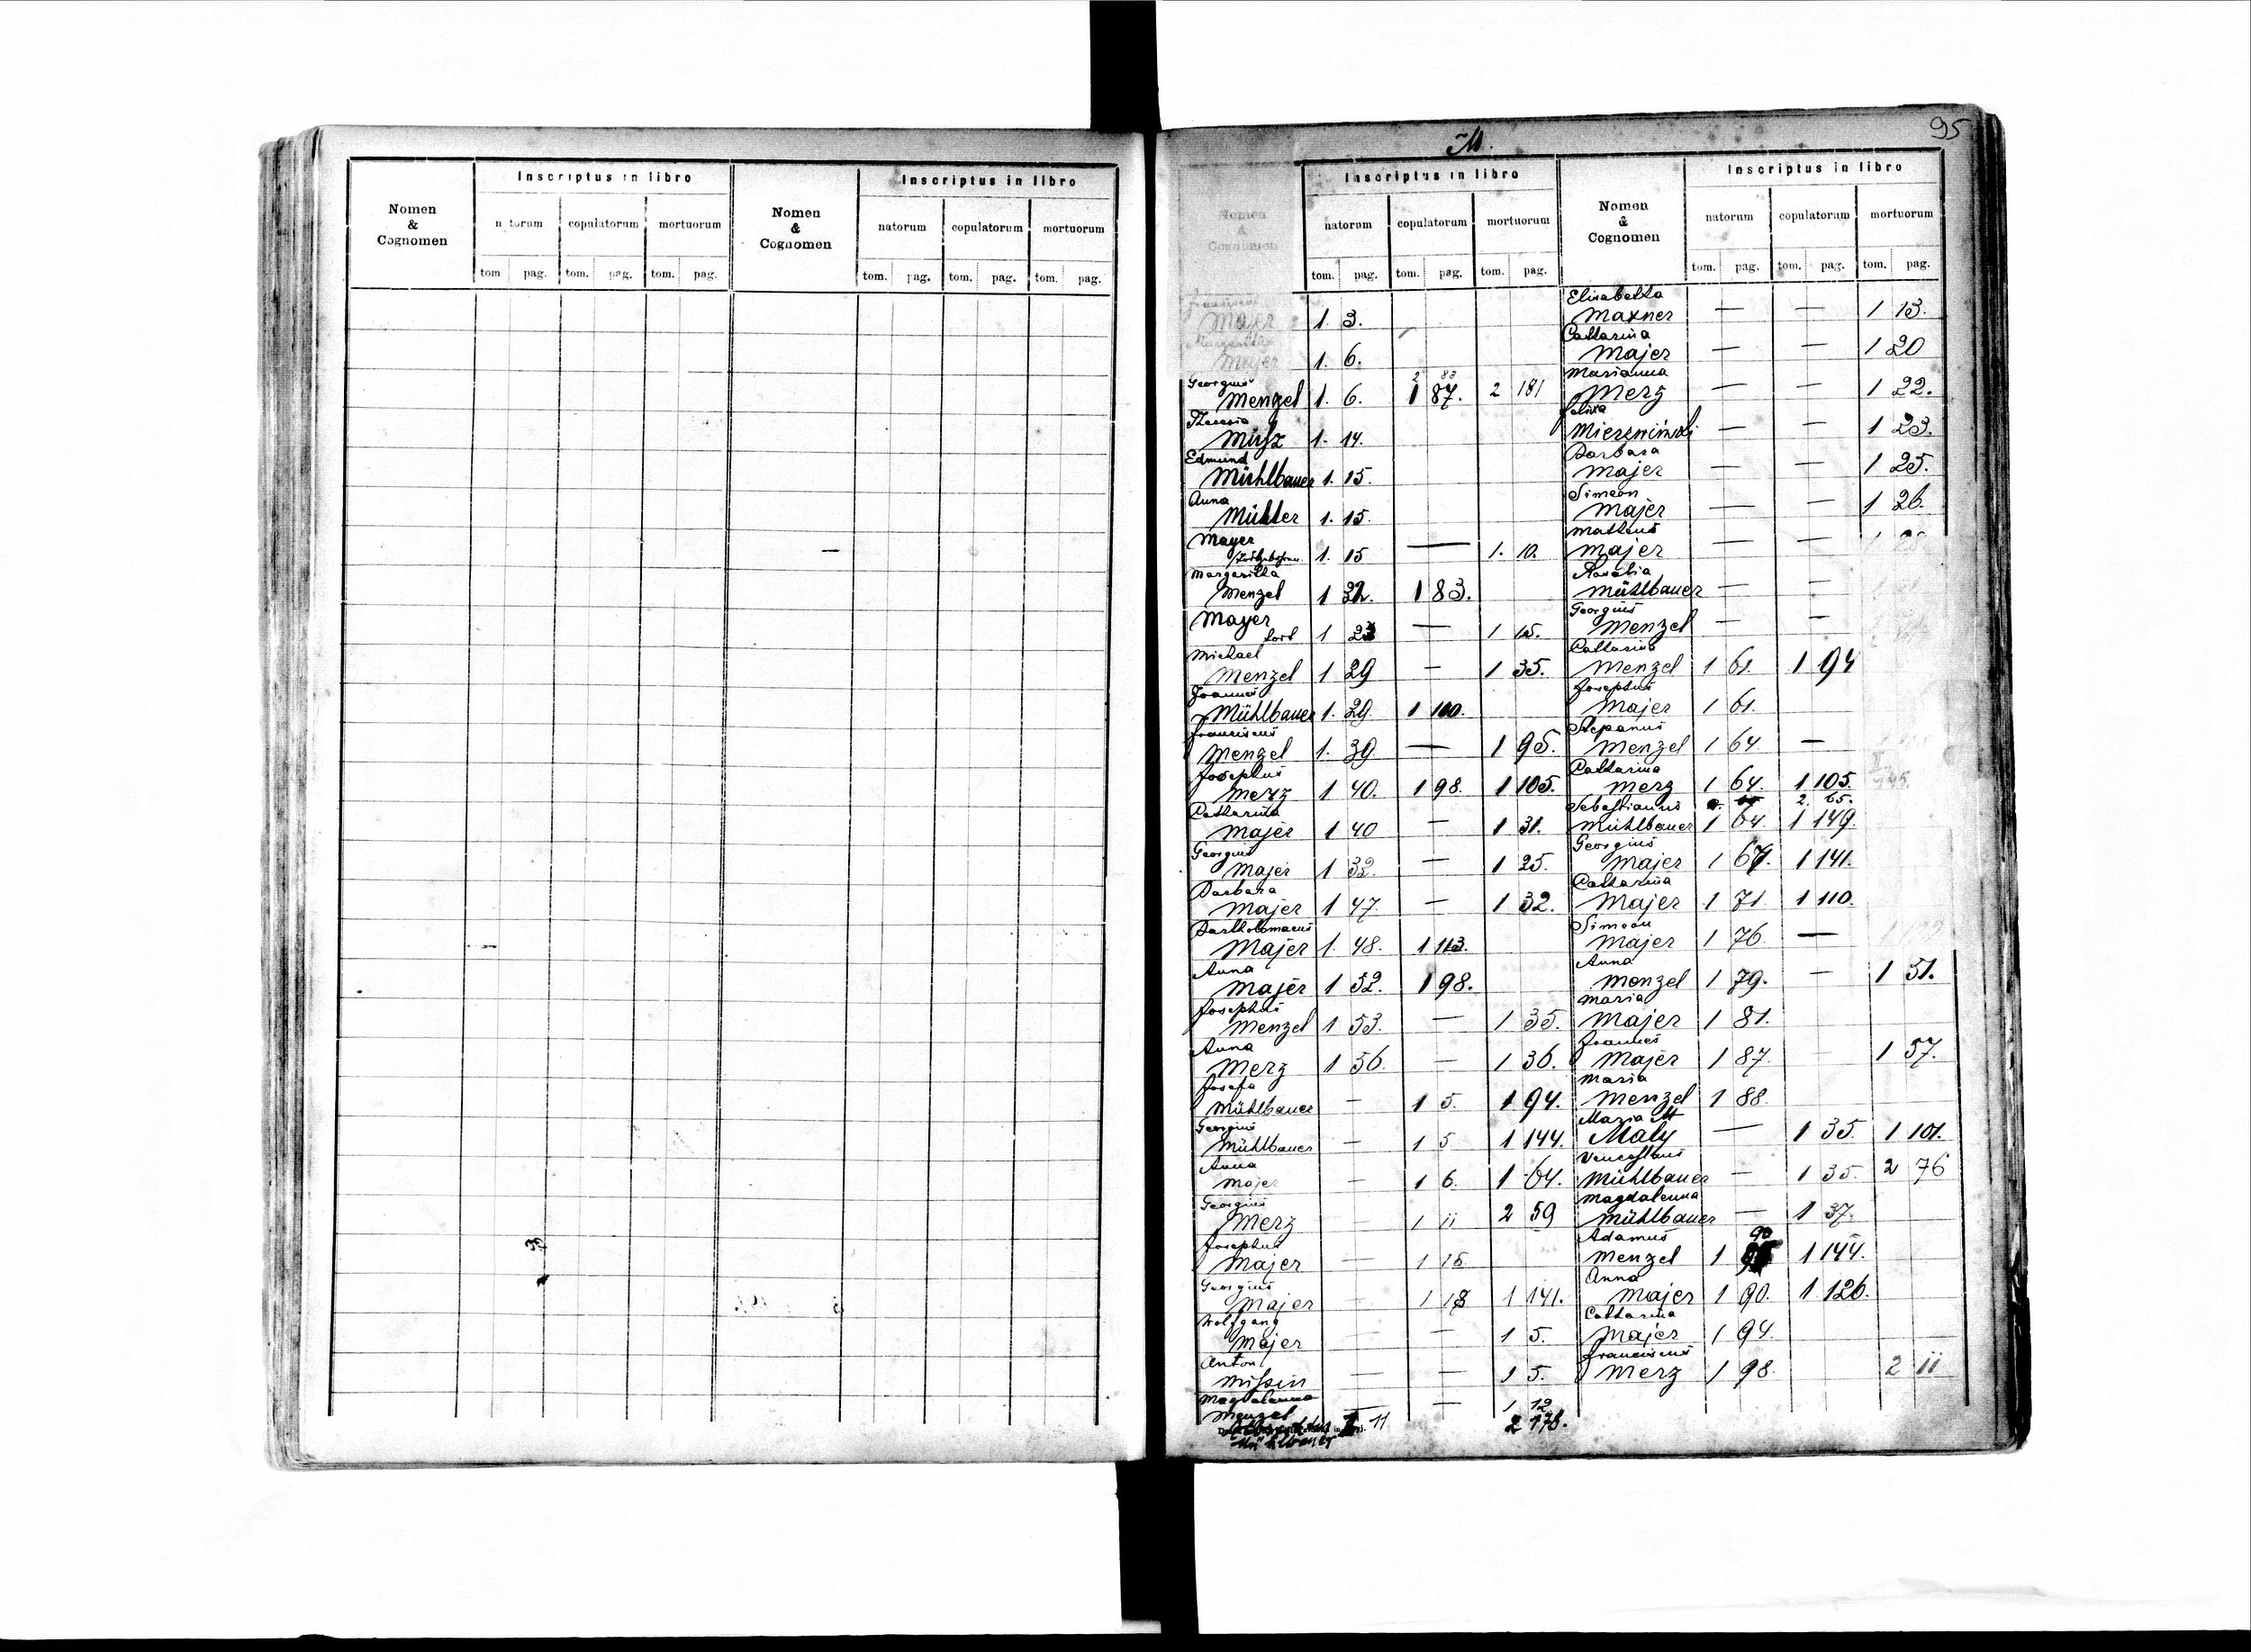 Nomen & Cognomen
Inscriptus in libro
natorum copulatorum mortuorum
tom pag. tom. pag. tom. pag.
Nomen & Cognomen
Inscriptus in libro
natorum copulatorum mortuorum
tom. pag. tom. pag. tom. pag.
M.
95
Nomen & Cognomen
Inscriptus in libro
natorum copulatorum mortuorum
tom. pag. tom. pag. tom. pag.
Franciscus
Majer 1. 3.
Margaritta
Majer 1. 6.
2 83
Georgius
Menzel 1. 6. 1 87. 2 181
Theresia
1. 14.
Edmund
Mühlbauer 1. 15.
Anna
Müller 1. 15.
Mayer
1. 15 — 1. 10.
Margaritta
Menzel 1 22. 1 83.
Mayer
1 23 — 1 15.
Michael
Menzel 1 29 — 1 35.
Joannes
Mühlbauer 1. 29 1 110.
Franciscus
Menzel 1. 39 — 1 95.
Josephus
Merz 1 40. 1 98. 1 105.
Catharina
Majer 1 40 — 1 31.
Georgius
Majer 1 32. — 1 25.
Barbara
Majer 1 47. — 1 32.
Bartholomaeus
Majer 1. 48. 1 113.
Anna
Majer 1 52. 1 98.
Josephus
Menzel 1 53. — 1 35.
Anna
Merz 1 56. — 1 36.
Josefa
Mühlbauer — 1 5. 1 94.
Georgius
Mühlbauer — 1 5 1 144.
Anna
Majer — 1 6. 1 64.
Georgius
Merz — 1 11 2 59
Josephus
Majer — 1 15
Georgius
Majer — 1 18 1 141.
Wolfgang
Majer — — 1 5.
Anton
— — 1 5.
Magdalenna
Menzel — — 1 12
Mühlbauer 11 2 178.
Nomen & Cognomen
Inscriptus in libro
natorum copulatorum mortuorum
tom. pag. tom. pag. tom. pag.
Elisabetta
Maxner — — 1 13.
Catharina
Majer — — 1 20
Marianna
Merz — — 1 22.
Felixa
Mierzwiński — — 1 23.
Barbara
Majer — — 1 25.
Simeon
Majer — — 1 26.
Matheus
Majer — —
Rosalia
Mühlbauer — —
Georgius
Menzel — —
Catharina
Menzel 1 61. 1 94
Josephus
Majer 1 61.
Stepanus
Menzel 1 64. —
Catharina
Merz 1 64. 1 105.
2. 65.
Sebastianus
Mühlbauer 1 64. 1 149.
Georgius
Majer 1 67. 1 141.
Catharina
Majer 1 71. 1 110.
Simeon
Majer 1 76. —
Anna
Menzel 1 79. — 1 51.
Maria
Majer 1 81.
Joannes
Majer 1 87. — 1 57.
Maria
Menzel 1 88.
Maria M
Maly — 1 35. 1 101.
Venceslaus
Mühlbauer — 1 35. 2 76
Magdalenna
Mühlbauer — 1 37.
Adamus 90
Menzel 1 1 144.
Anna
Majer 1 90. 1 126.
Catharina
Majer 1 94.
Franciscus
Merz 1 98. 2 11